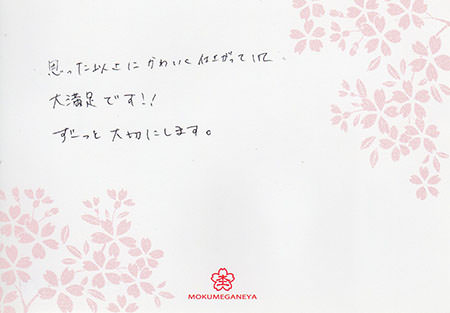 思った以上にかわいく仕上がっていて
大満足です!!
ずーっと大切にします。
MOKUMEGANEYA